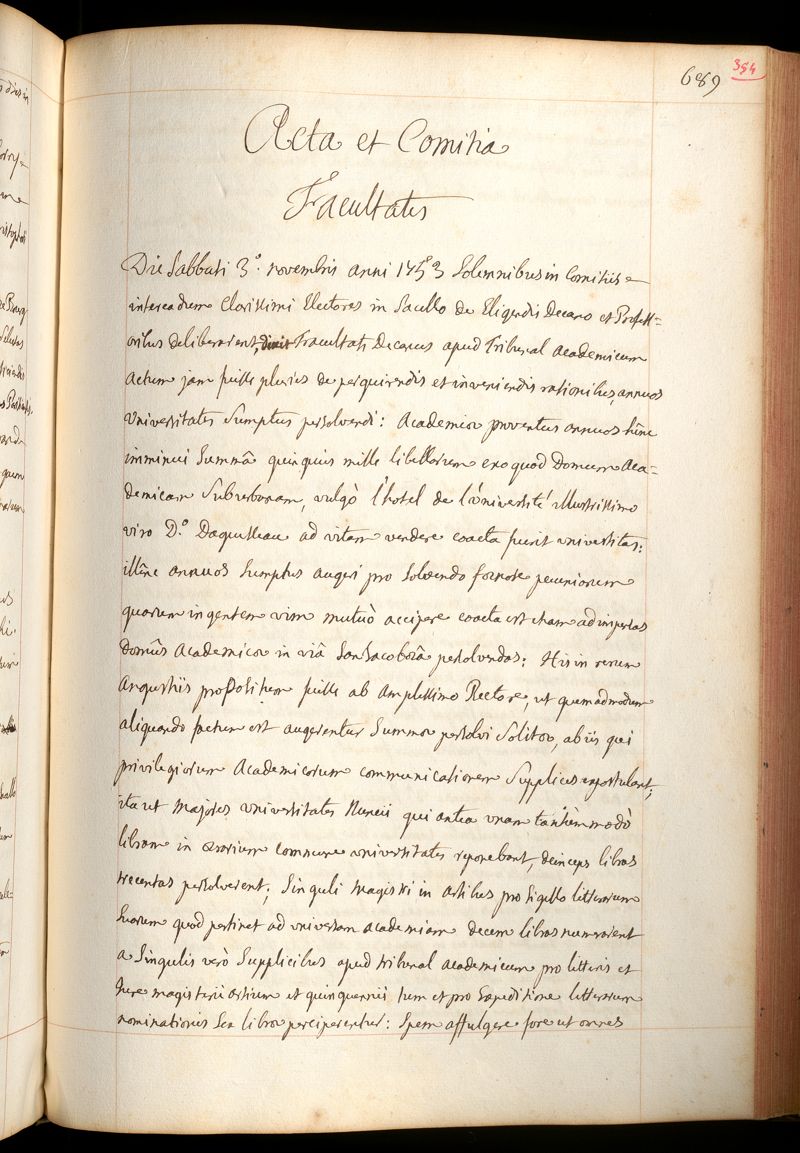 689
384
Acta et Comitia
Facultatis
Die Sabbati 3°. novembris anni 1753 Solemnibus in Comitiis
interea dum Clarissimi Electores in Sacello de Eligendis Decano et Profess=
oribus deliberarent, dixit Facultatis Decanus apud Tribunal academicum
actum jam fuisse pluries de perquirendis et inveniendis rationibus, annuos
Universitatis Sumptus persolvendi: Academiæ proventus annuos hinc
imminui Summâ quinquies mille libellarum ex quo Domum Aca=
demicam Suburbanam, vulgò l'hotel de l'université illustrissimo
viro D.° Daguesseau ad vitam vendere coacta fuerit universitas:
illinc annuos Sumptus augeri pro Solvendo foenore pecuniarum
quarum ingentem vim mutuò accipere coacta est etiam ad impensas
Domûs Academicæ in viâ San Jacobæâ persolvendas: His in rerum
angustiis propositum fuisse ab amplissimo Rectore, ut quemadmodum
aliquando factum est augerentur Summæ persolvi Solitæ, ab iis qui
privilegiorum Academicorum communicationem Supplices expostulant;
ita ut majores universitatis Nuncii qui antea unam tantummodò
libram in ærarium commune universitatis reponebant, deinceps libras
trecentas persolverent; Singuli magistri in artibus pro Sigillo litterarum
Suarum quod pertinet ad universam academiam decem libras numerarent
a Singulis verò Supplicibus apud tribunal academicum pro litteris et
Jure magisterii artium et quinquennii tum et pro Expeditione litterarum
nominationis Sex libræ perciperentur: Spem affulgere fore ut omnes